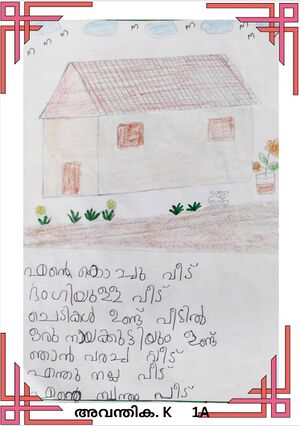 എന്റെ കൊച്ചു വീട്
ഭംഗിയുള്ള വീട്
ചെടികൾ ഉണ്ട് വീട്ടിൽ
ഒരു നായക്കുട്ടിയും ഉണ്ട്
ഞാൻ വരച്ച വീട്
എന്തു നല്ല വീട്
എന്റെ സ്വന്തം വീട്
അവന്തിക. K 1A